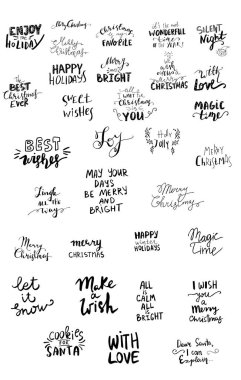 ENJOY
the
HOLIDAY
Merry Christmas
Merry
Christmas
Christmas
is my
FAVORITE
it's the most
WONDERFUL
time
OF THE YEAR!
SILENT
Night
The
BEST
Christmas
EVER
HAPPY
HOLIDAYS
Merry
and
BRIGHT
MERRY
CHRISTMAS
With
Love
sweet
wishes
all i
WANT for
Christmas
is
YOU
MAGIC
time
BEST
wishes
Joy
Holly
Jolly
Merry
CHRISTMAS
Jingle
all the
Way
MAY YOUR
DAYS
BE MERRY
AND
BRIGHT
Merry
Christmas
Merry
Christmas
merry
CHRISTMAS
HAPPY
winter
HOLIDAYS
Magic
Time
let
it
snow
Make
a
wish
ALL
IS
CALM
ALL
IS
BRIGHT
I WISH
you
a
Merry
Christmas
COOKIES
FOR
SANTA
WITH
LOVE
Dear Santa,
I can
Explain